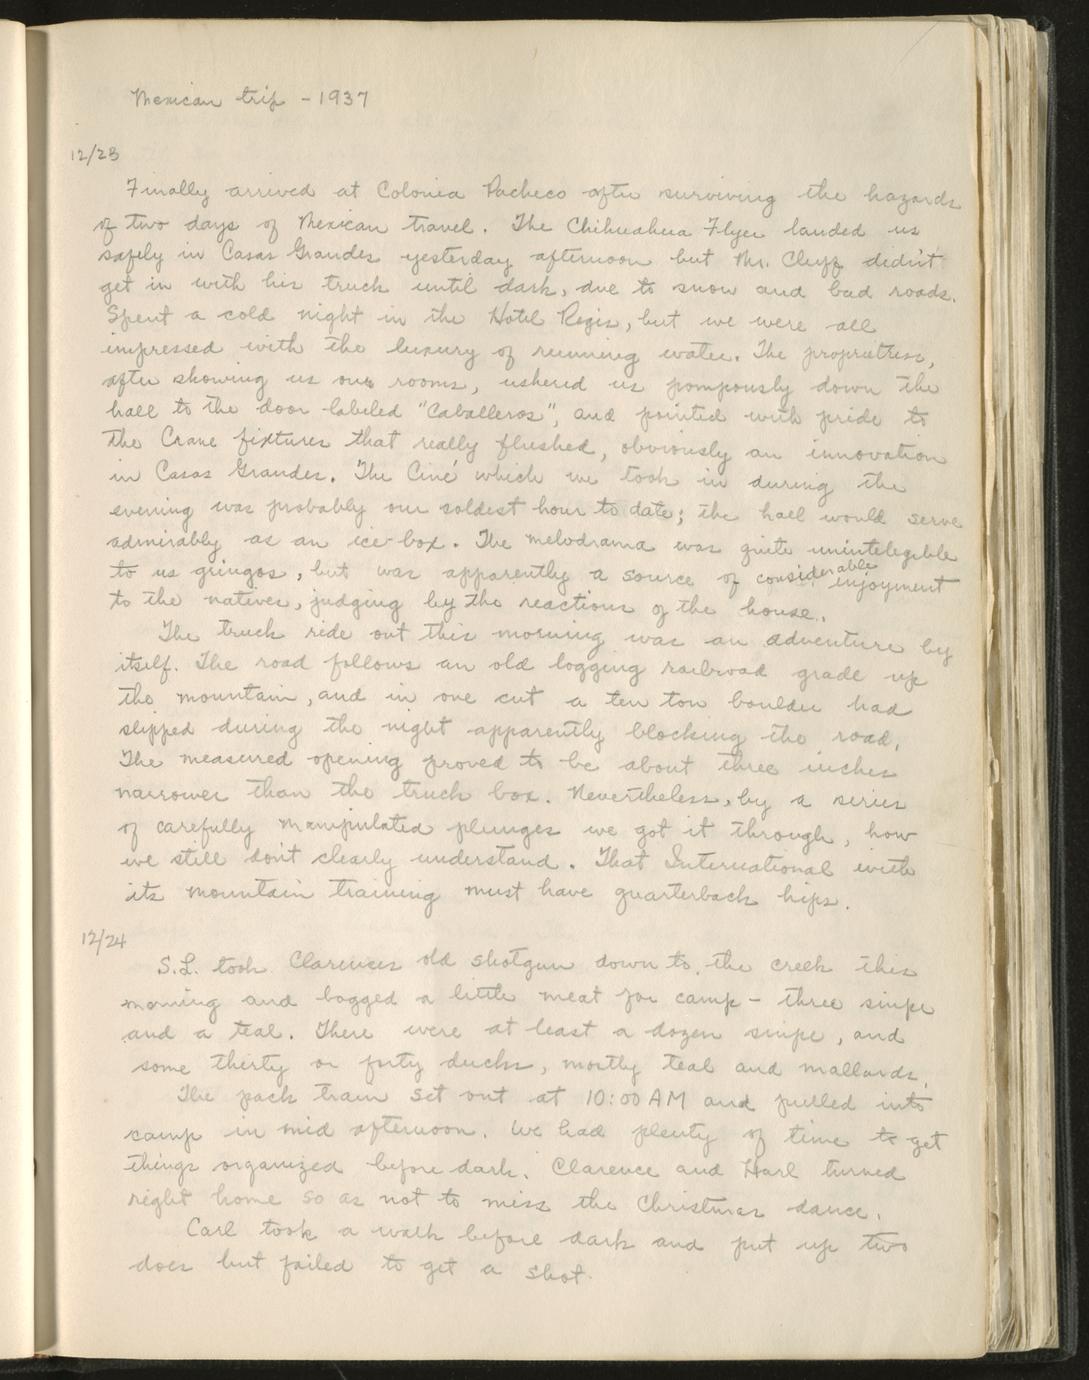 Mexican trip - 1937
12/23
Finally arrived at Colonia Pacheco after surviving the hazards
of two days of Mexican travel. The Chihuahua Flyer landed us
safely in Casas Grandes yesterday afternoon but Mr. Cluff didn't
get in with his truck until dark, due to snow and bad roads.
Spent a cold night in the Hotel Regis, but we were all
impressed with the luxury of running water. The proprietress,
after showing us our rooms, ushered us pompously down the
hall to the door labeled "Caballeros", and pointed with pride to
the Crane fixtures that really flushed, obviously an innovation
in Casas Grandes. The Ciné which we took in during the
evening was probably our coldest hour to date; the hall would serve
admirably as an ice-box. The melodrama was quite unintelegible
to us gringos, but was apparently a source of considerable enjoyment
to the natives, judging by the reactions of the house.
The truck ride out this morning was an adventure by
itself. The road follows an old logging railroad grade up
the mountain, and in one cut a ten ton boulder had
slipped during the night apparently blocking the road.
The measured opening proved to be about three inches
narrower than the truck box. Nevertheless, by a series
of carefully manipulated plunges we got it through, how
we still don't clearly understand. That International with
its mountain training must have quarterback hips.
12/24
S.L. took Clarences old shotgun down to the creek this
morning and bagged a little meat for camp - three snipe
and a teal. There were at least a dozen snipe, and
some thirty or forty ducks, mostly teal and mallards.
The pack train set out at 10:00 AM and pulled into
camp in mid afternoon. We had plenty of time to get
things organized before dark. Clarence and Harl turned
right home so as not to miss the Christmas dance.
Carl took a walk before dark and put up two
does but failed to get a shot.